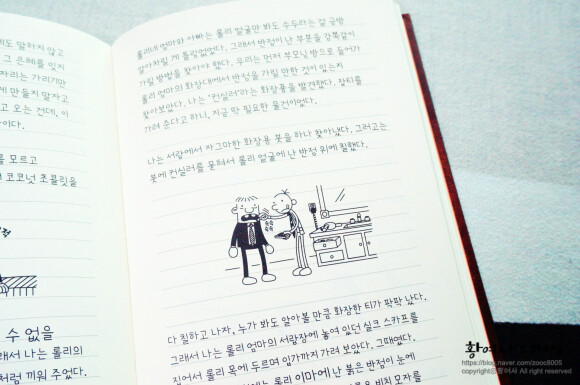 도 말하지 않고
그 은혜를 잊지
자리는 가리기만
게 만들지 말자고
고 오는 건데, 이
이다.
를 모르고
코코넛 초콜릿을
수 없을
래서 나는 롤리의
처럼 끼워 주었다.
롤리네 엄마와 아빠는 롤리 얼굴만 봐도 수두라는 걸 금방
알아차릴 게 틀림없었다. 그래서 반점이 난 부분을 감쪽같이
가릴 방법을 찾아야 했다. 우리는 먼저 부모님 방으로 들어가
롤리 엄마의 화장대에서 반점을 가릴 만한 것이 있는지
찾아보았다. 나는 '컨실러'라는 화장품을 발견했다. 잡티를
가려 준다고 하니, 지금 딱 필요한 물건이었다.
나는 서랍에서 자그마한 화장용 붓을 하나 찾아냈다. 그러고는
붓에 컨실러를 묻혀서 롤리 얼굴에 난 반점 위에 칠했다.
다 칠하고 나자, 누가 봐도 알아볼 만큼 화장한 티가 팍팍 났다.
그래서 나는 롤리 엄마의 서랍장에 놓여 있던 실크 스카프를
집어서 롤리 목에 두르며 입가까지 가려 보았다. 그때였다.
롤리 이마에 난 붉은 반점이 눈에
https://blog.naver.com/zooc8005
All right reserved